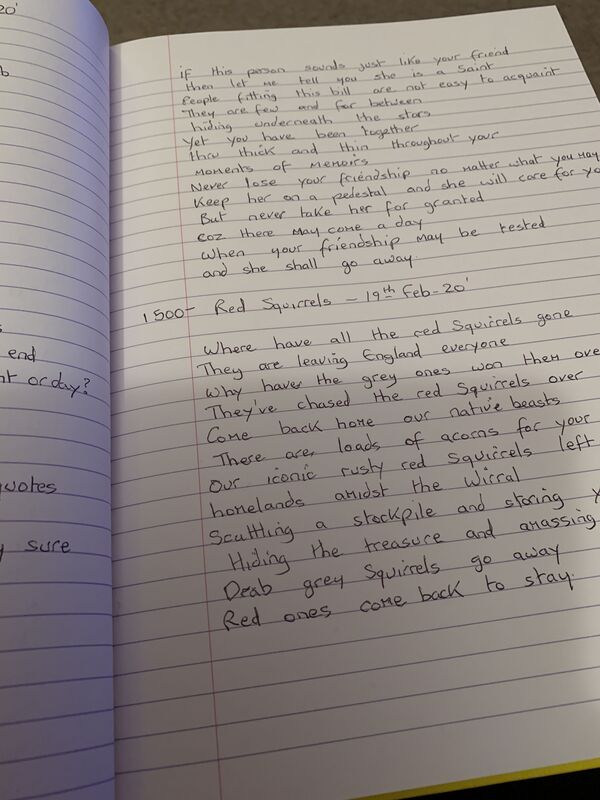 20'
b
s
end
nt or day?
quotes
y sure
if this person sounds just like your friend
then let me tell you she is a Saint
People fitting this bill are not easy to acquaint
They are few and far between
hiding underneath the stars
Yet you have been together
thru thick and thin throughout your
Moments of Memoirs
Never lose your friendship no matter what you may
Keep her on a pedestal and she will care for yo
But never take her for granted
coz there may come a day
When your friendship may be tested
and she shall go away.
1500- Red Squirrels - 19th Feb-20'
Where have all the red Squirrels gone
They are leaving England everyone
Why have the grey ones won them over
They've chased the red Squirrels over
Come back home our native beasts
There are loads of acorns for your
Our iconic rusty red Squirrels left
homelands amidst the Wirral
Scuttling a stockpile and storing y
Hiding the treasure and amassing
Drab grey Squirrels go away
Red ones come back to stay.